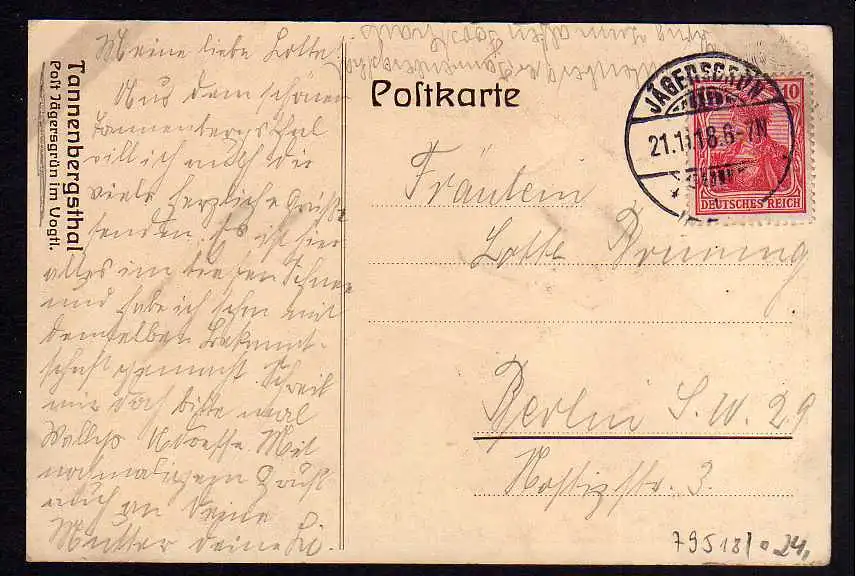 Tannenbergsthal
Post Jägersgrün im Vogtl.
Meine liebe Lotte!
Aus dem schönen
Tannenbergsthal
will ich auch die
viele herzliche Grüße
senden. Es ist hier
alles im tiefen Schnee
und habe ich schon mit
demselben Bekannt-
schaft gemacht. Schreib
mir doch bitte mal
Adresse. Mit
nochmaligem Gruß
auch an Deine
Mutter Deine
Postkarte
JÄGERSGRÜN
21.1.18.6-7N
10
DEUTSCHES REICH
Fräulein
Lotte Brünning
Berlin S.W. 29
Nostizstr. 3.
79518
24,